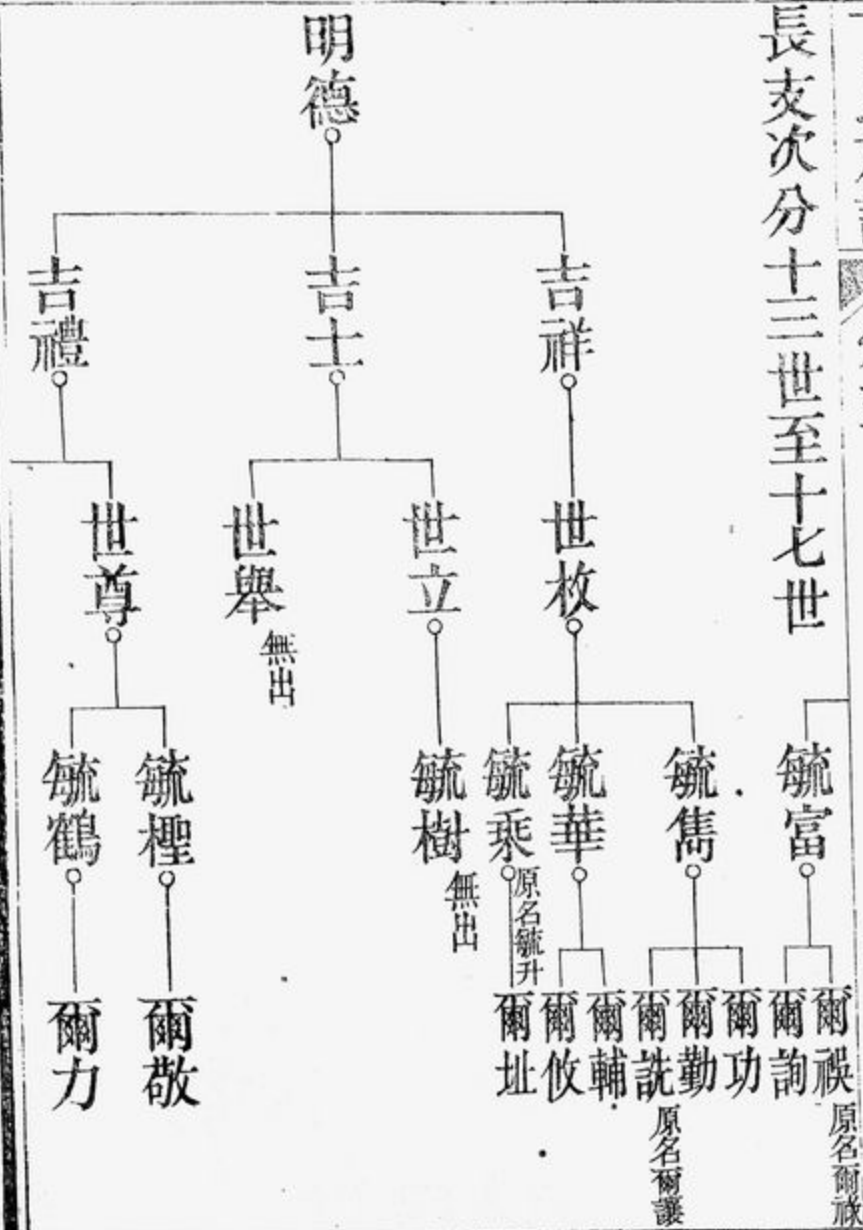 長支次分十三世至十七世
明德
吉祥
吉士
吉禮
世枚
世立
世舉 無出
世尊
毓富
毓雋
毓華
毓乘 原名毓升
毓樹 無出
毓檉
毓鶴
爾祦 原名爾祴
爾詢
爾功
爾勤
爾詵 原名爾讓
爾輔
爾攸
爾址
爾敬
爾力